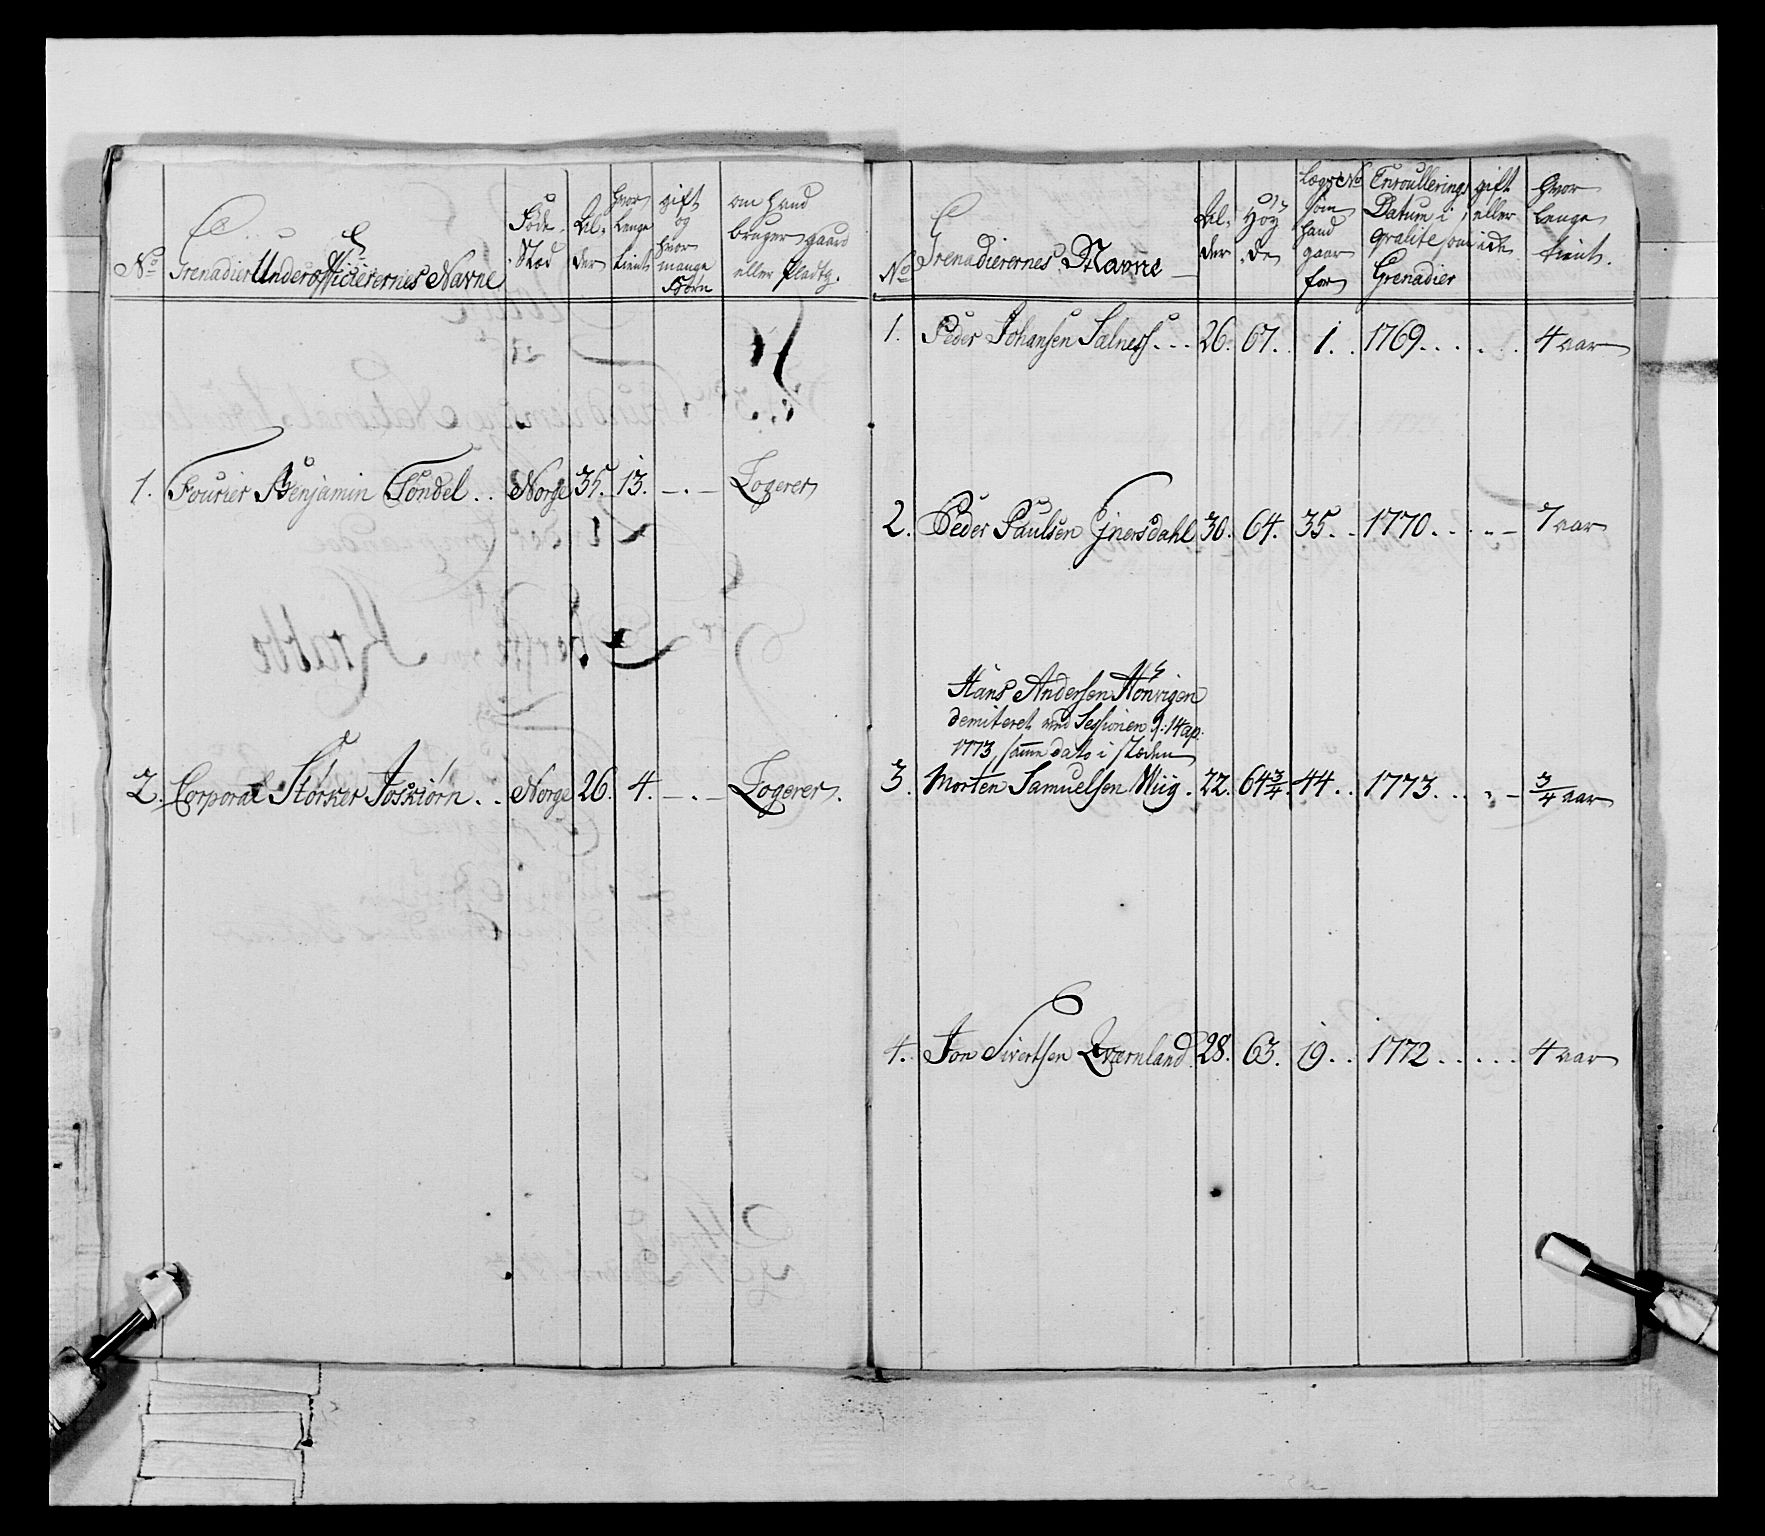 No
Grenadier Underofficierernes Navne
Føde Stæd
Alder
hvor Lenge tient
gift og hvor mange Børn
om hand bruger gaard eller pladtz.
1. Fourier Benjamin Tøndel . . Norge 35. 13. - . - Logerer
2. Corporal Størker Joskiørn . . Norge 26. 4. - . - Logerer.
No
Grenadierernes Navne
Alder
Høyde
Lægs No som hand gaar for
Enroullerings Datum i qvalite som Grenadier
gift eller ide
hvor lenge tient.
1. Peder Johansen Salness . . . 26. 67. . 1. . 1769. . . . . . 4 aar
2. Peder Paulsen Ejnersdahl 30. 64. 35. . 1770. . . . . - 7 aar
Hans Andersen Hønvigen
demiteret ved Sessionen d: 14 ap:
1773, samme dato i stæden
3. Morten Samuelsen Wiig . 22. 64 3/4. 44. . 1773. . . . - 3/4 aar
4. Jon Sivertsen Qværnland 28. 63. 19. . 1772 . . . . . 4 aar